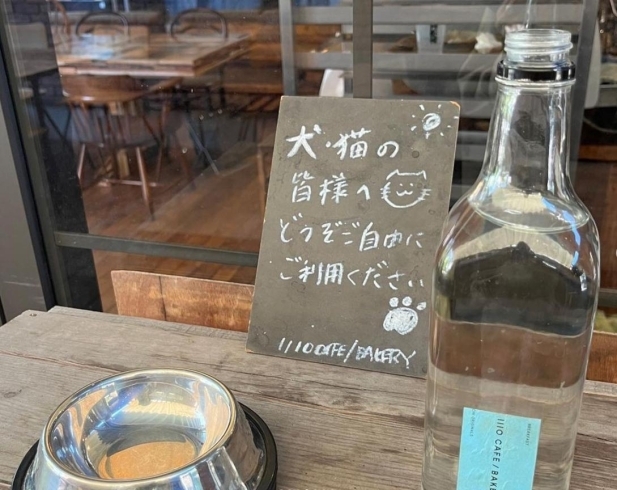 犬・猫の
皆様へ
どうぞご自由に
ご利用ください
1110 CAFE/BAKERY
1110 CAFE / BAKE